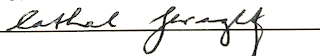 Cathal Geraghty